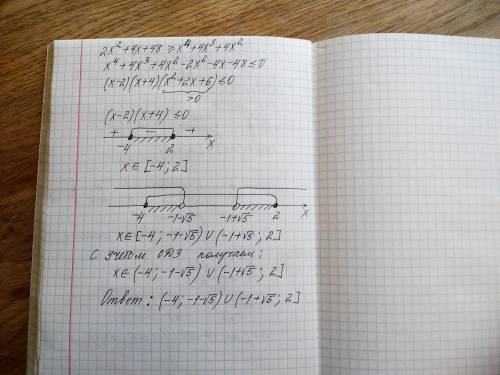 2x²+4x+48 ≥ x⁴+4x³+4x²
x⁴+4x³+4x²-2x²-4x-48 ≤ 0
(x-2)(x+4)(x²+2x+6) ≤ 0
>0
(x-2)(x+4) ≤ 0
+ - +
-4 2 x
x ∈ [-4; 2]
-4 -1-√5 -1+√5 2 x
x ∈ [-4; -1-√5) ∪ (-1+√5; 2]
С учетом ОДЗ получаем:
x ∈ (-4; -1-√5) ∪ (-1+√5; 2]
Ответ: (-4; -1-√5) ∪ (-1+√5; 2]